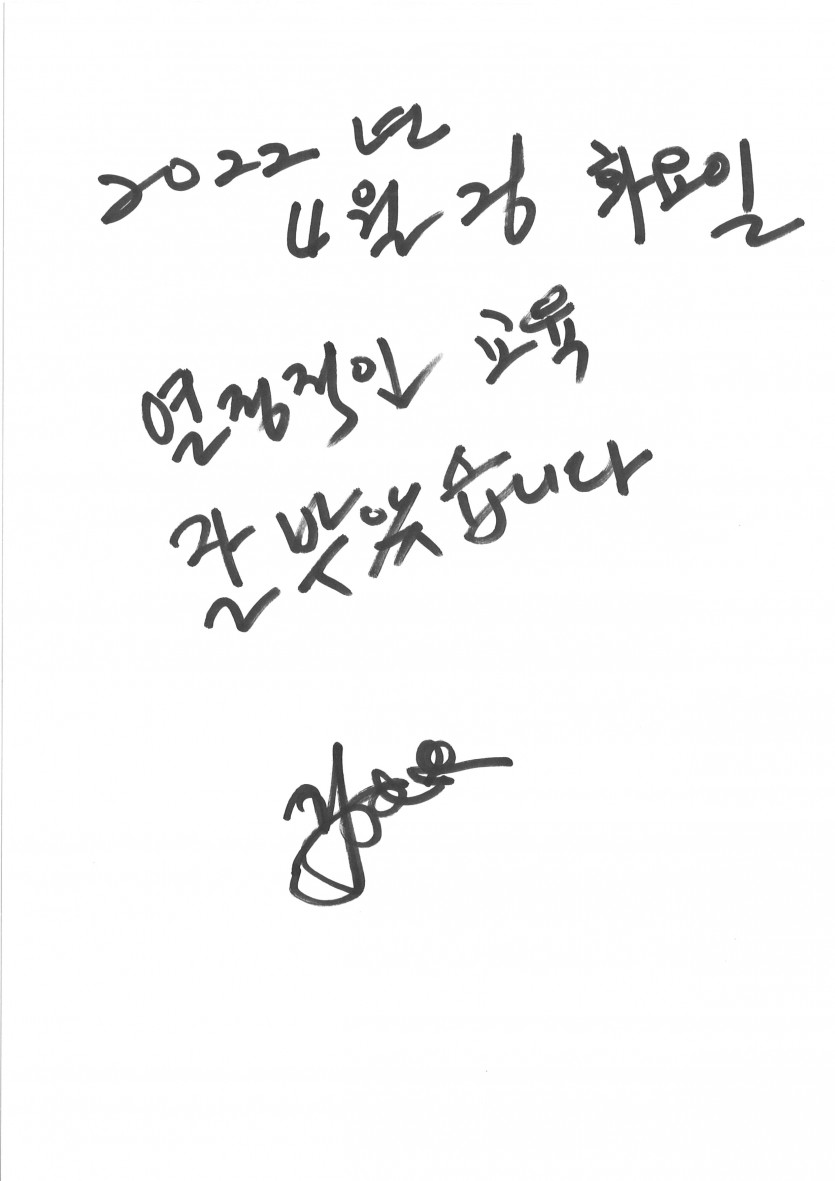 2022 년
4월 26 화요일
열정적인 교육
잘 받았습니다